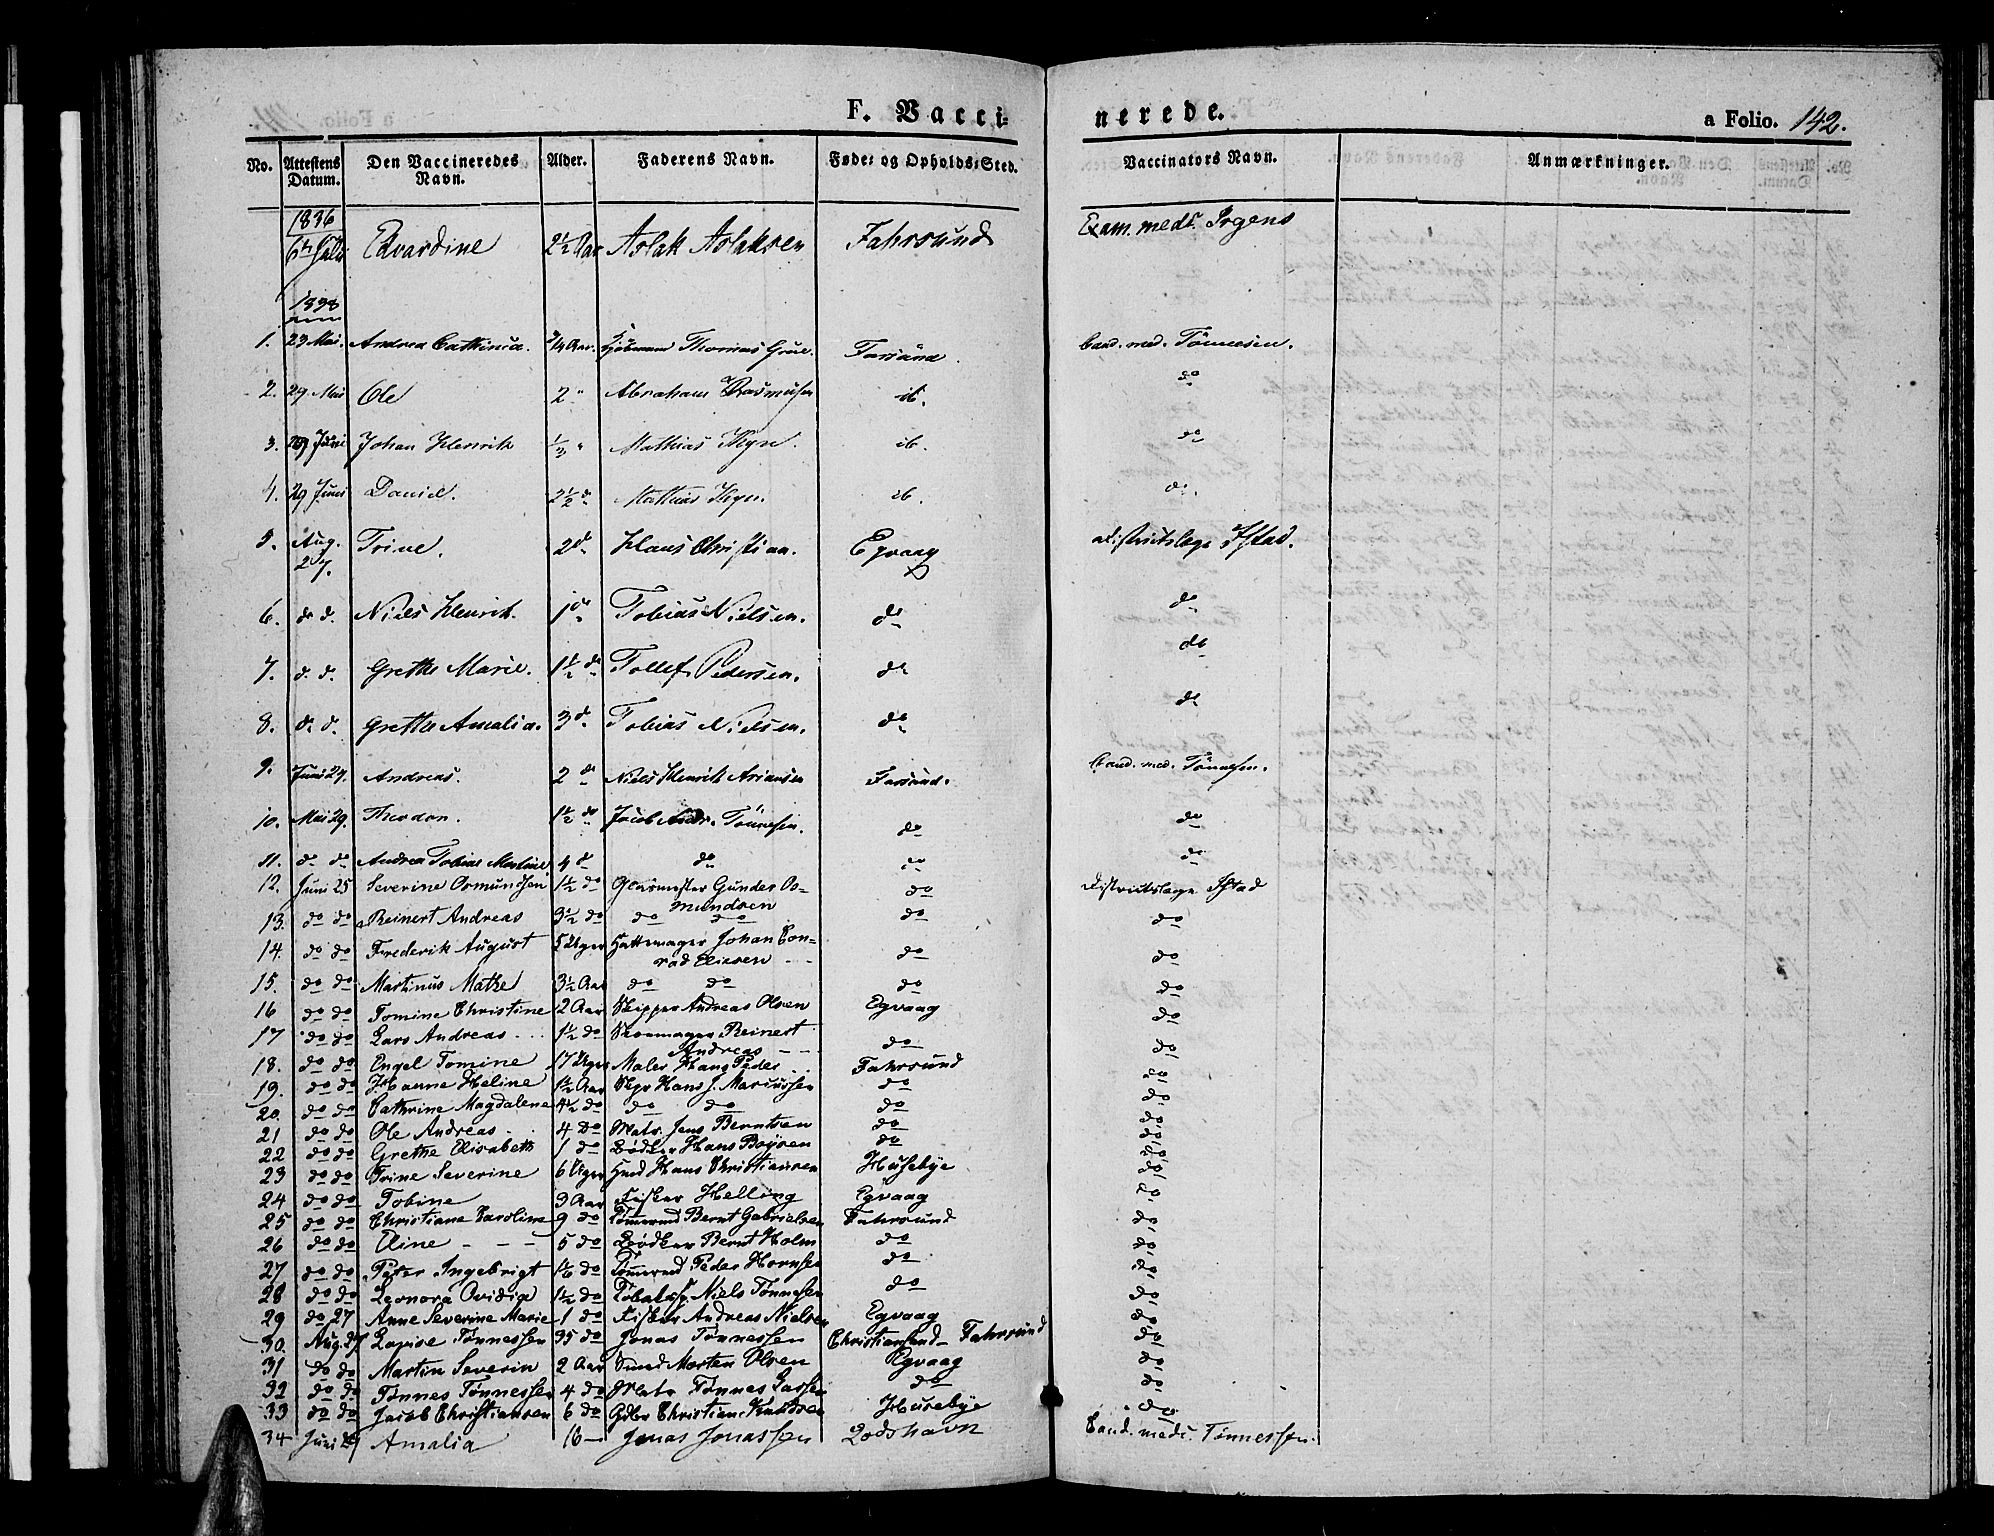 F. Vacci-
nerede.
a Folio. 142.
No. Attestens Datum. Den Vaccineredes Navn. Alder. Faderens Navn. Føde- og Opholds-Sted. Vaccinators Navn. Anmærkninger.
1836
6te Juli Edvardine 2½ Aar Aslak Aslaksen Fahrsund Exam. med. Irgens
1838
1. 23 Mai. Andrea Cathinca. ¾ Aar. Thomas Farsund. Cand. med. Tönnesen.
2. 29. Mai Ole 2 " Abraham Rasmusen ib. do
3. 29 Juni Johan Henrik ⅓ " Mathias ib. do
4. 29 Juni Daniel. 2½ d Mathias ib. do.
5. Aug. 27. Trine. 2 d. Klaus Christian. Egvaag Districtslæge Ystad.
6. d. d. Niels Henrik. 1 d. Tobias Nielsen. do do
7. d. d. Grethe Marie. 1½ do Tollef Pedersen. do do
8. d. d. Grethe Amalia. 3 d. Tobias Nielsen. do do
9. Juni 29. Andreas. 2 do Niels Henrik Ariansen Farsund. Cand. med. Tönnesen.
10. Mai 29. Theodor. 1½ do Jacob Andr. Tönnesen. do do
11. do do Andrea Tobine Martine 4 d do do do
12. Juni 25 Severine Osmundsen 1½ do Glarmester Gunder Os-
mundsen do Districtslæge Ystad
13. do do Reinert Andreas 3½ do do do do do
14. do do Frederik August 5 Uger Hattemager Johan Con-
rad Eliesen - - do do
15. do do Martinus Mathe 3½ Aar do do do do
16 do do Tomine Christine 2 Aar Skipper Andreas Olsen Egvaag do
17 do do Lars Andreas - . . 1½ do Skoemager Reinert
Andreas - - do do
18. do do Engel Tomine 17 Uger Maler Hans Peder . . Fahrsund do
19. do do Hanne Heline 1½ Aar Hans J. Mariussen do do
20. do do Cathrine Magdalene 4½ do do do do do
21 do do Ole Andreas - . 4 do Matr. Jens Berntsen do do
22 do do Grethe Elisabeth 1 do Bödker Hans Boysen do do
23 do do Trine Severine 6 Uger Hans Christiansen Husebye do
24 do do Tobine 3 Aar Fisker Helling Egvaag do
25 do do Christiane Caroline 9 do Tömermd Bernt Gabrielsen Fahrsund do
26 do do Eline - - - 5 do Bödker Bernt Holm do do
27 do do Peter Ingebrigt do Tömermd Peder do do
28 do do Leonora Ovidia 1½ do Niels Tönnesen do do
29 do 27 Anne Severine Marie 1 do Fisker Andreas Nielsen Egvaag do
30. Aug. 27 Tønnessen 35 do Jonas Tønnessen Christiansand - Fahrsund do
31 do do Martin Severin 2 Aar Smed Morten Olsen Egvaag do
32 do do Tønnes Tønnessen 4 do Matr Tønnes do do
33 do do Jacob Christiansen 6 do Christian Knudsen Husebye do
34 Juni Amalia 16 - Jonas Jonassen Lodshavn Cand. med. Tønnessen.